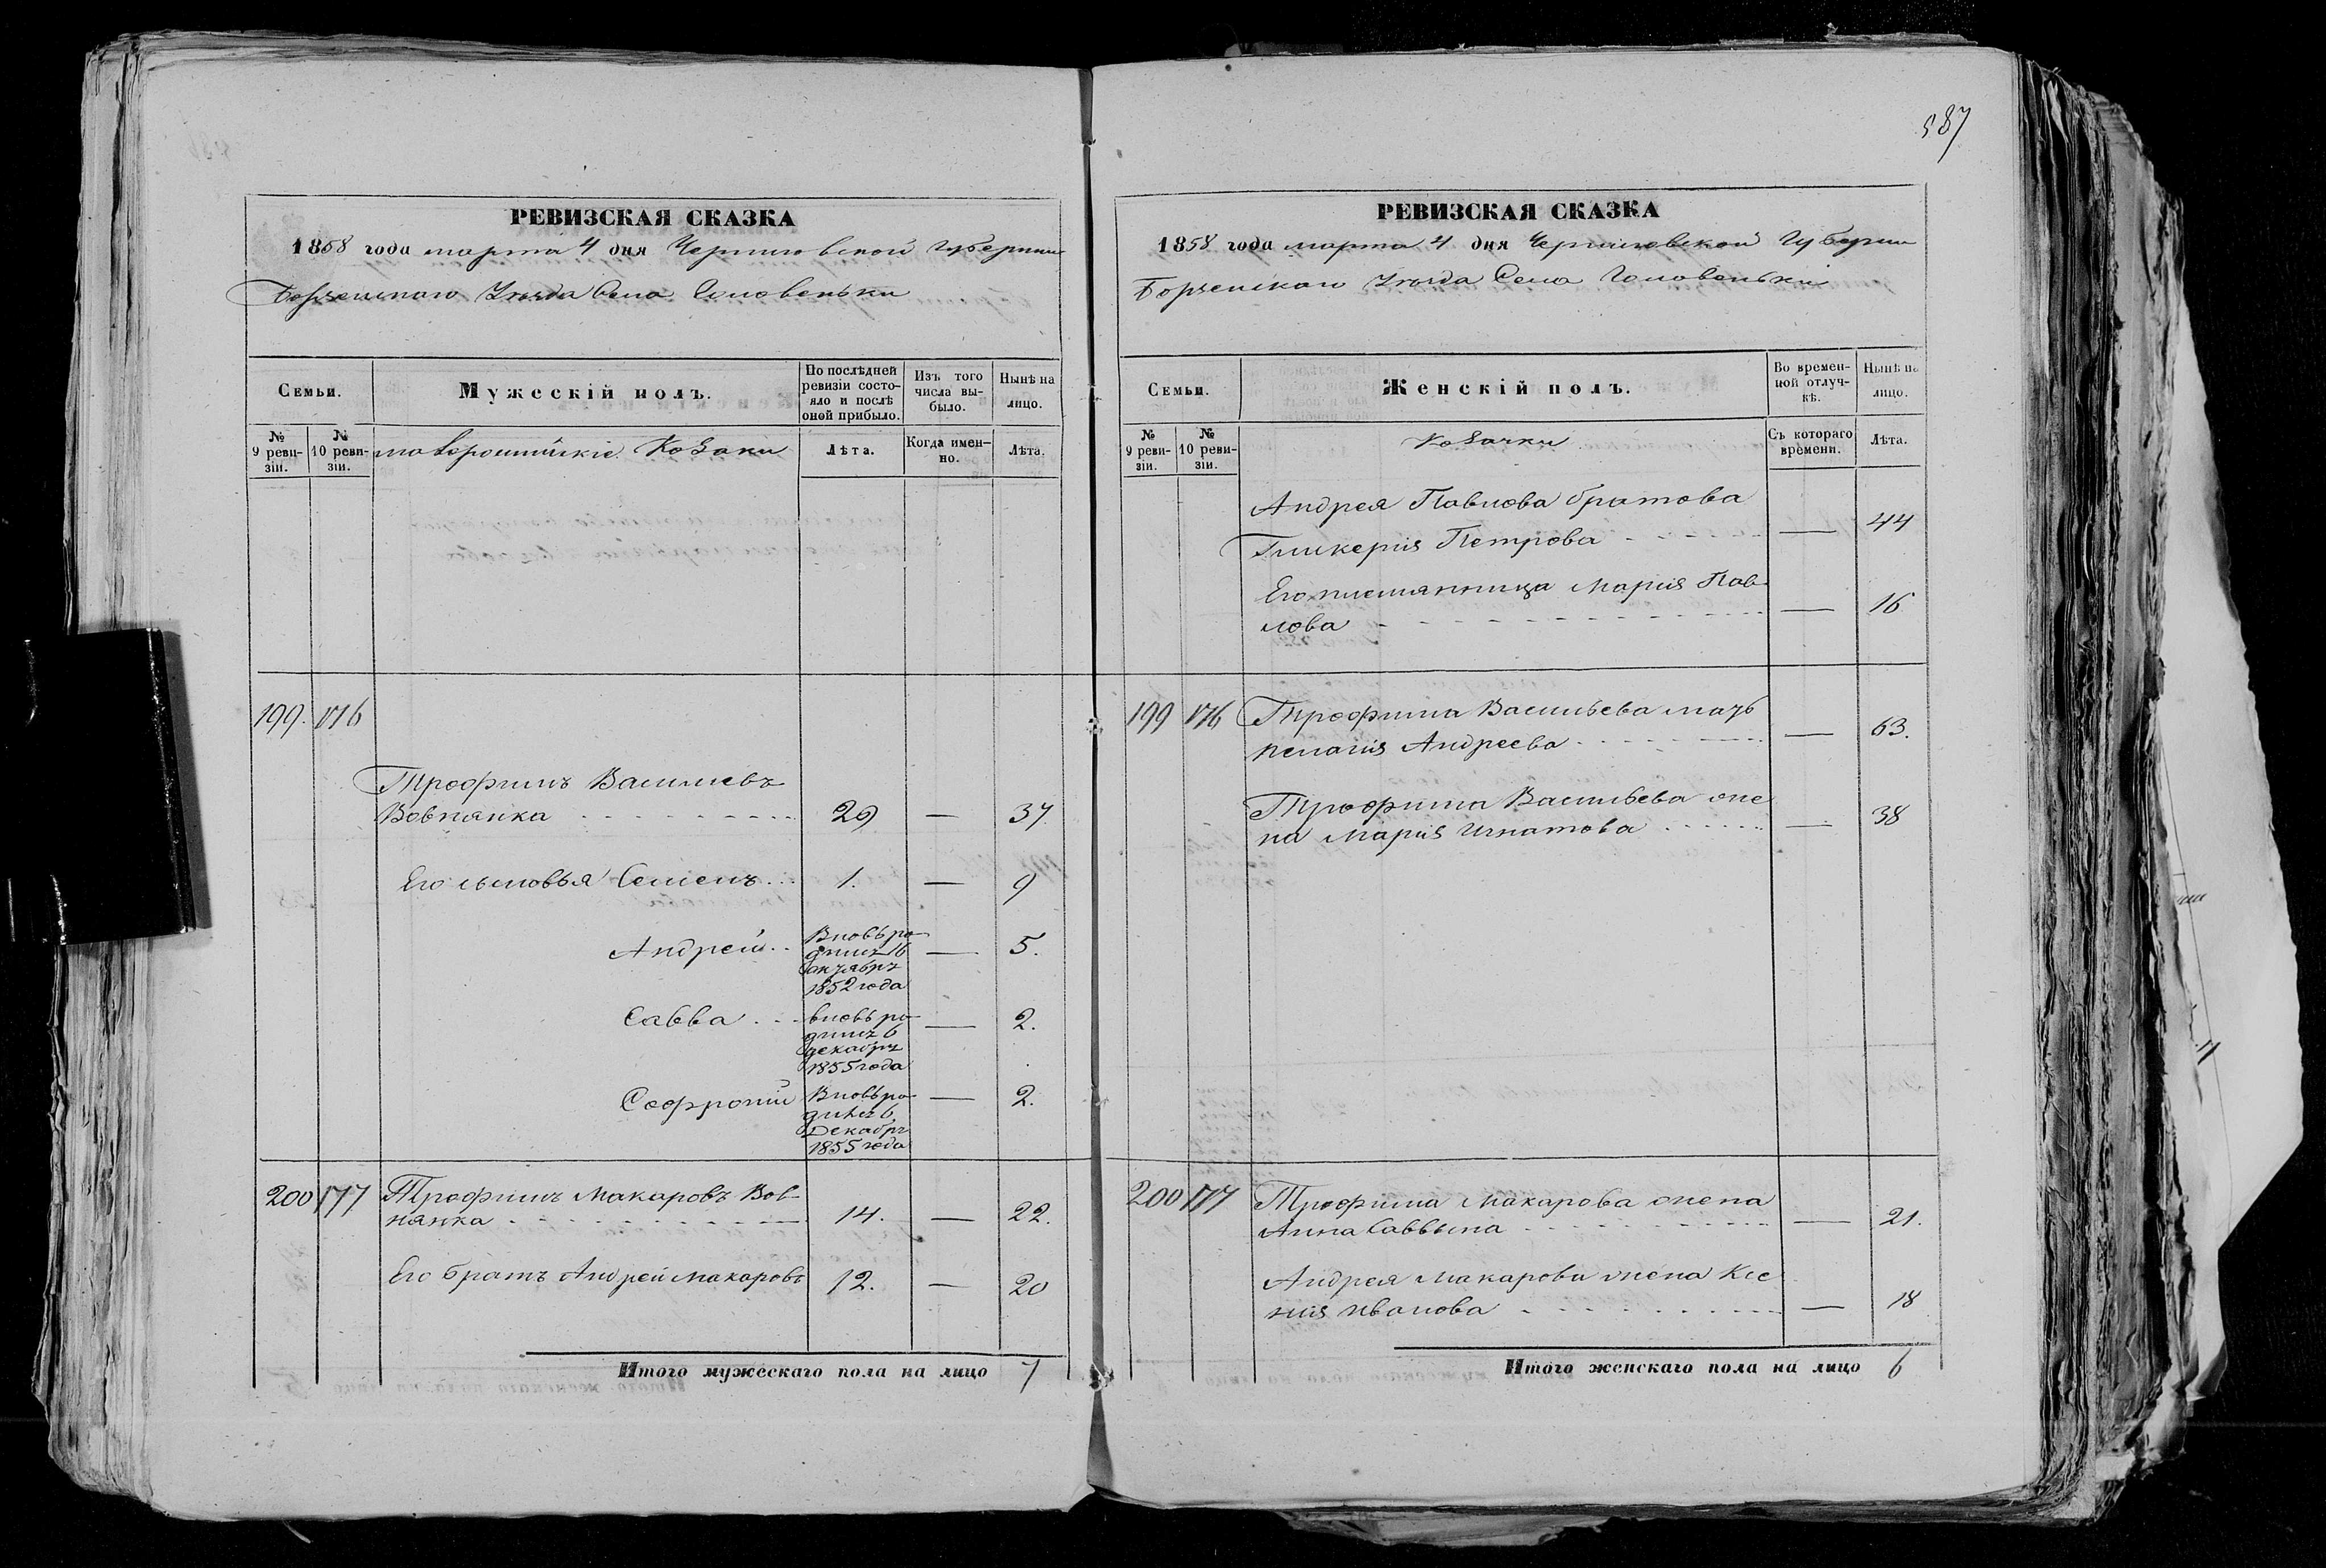 РЕВИЗСКАЯ СКАЗКА
1858 года марта 4 дня Черниговской Губернии
Борзенскаго Уѣзда Села Головеньки
Семьи.
Мужескій полъ.
По послѣдней ревизіи состо-
яло и послѣ оной прибыло.
Изъ того числа вы-
было.
Нынѣ на лицо.
№ 9 реви-
зіи.
№ 10 реви-
зіи.
малороссійскіе Козаки
Лѣта.
Когда имен-
но.
Лѣта.
199. 176
Трофимъ Васильевъ
Вовнянка 29 — 37
Его сыновья Семенъ 1. — 9
Андрей — 5.
Вновь ро-
дился 16
октября
1852 года
Савва — 2.
вновь ро-
дился 6
декабря
1855 года
Софроній — 2.
Вновь ро-
дился 6
Декабря
1855 года
200 177 Трофимъ Макаровъ Вов-
нянка 14. — 22.
Его братъ Андрей Макаровъ 12. — 20
Итого мужескаго пола на лицо 7
587
РЕВИЗСКАЯ СКАЗКА
1858 года марта 4 дня Черниговской Губернии
Борзенскаго Уѣзда Села Головеньки
Семьи.
Женскій полъ.
Во времен-
ной отлуч-
кѣ.
Нынѣ на лицо.
№ 9 реви-
зіи.
№ 10 реви-
зіи.
Козачки
Съ котораго времени.
Лѣта.
Андрея Павлова братова
Гликерія Петрова — 44
Его племянница Марія Пав-
лова — 16
199 176 Трофима Васильева мать
Пелагія Андреева — 63.
Трофима Васильева же
на Марія Игнатова — 38
200 177 Трофима Макарова жена
Анна Саввына — 21.
Андрея Макарова жена Ксе
нія Иванова — 18
Итого женскаго пола на лицо 6